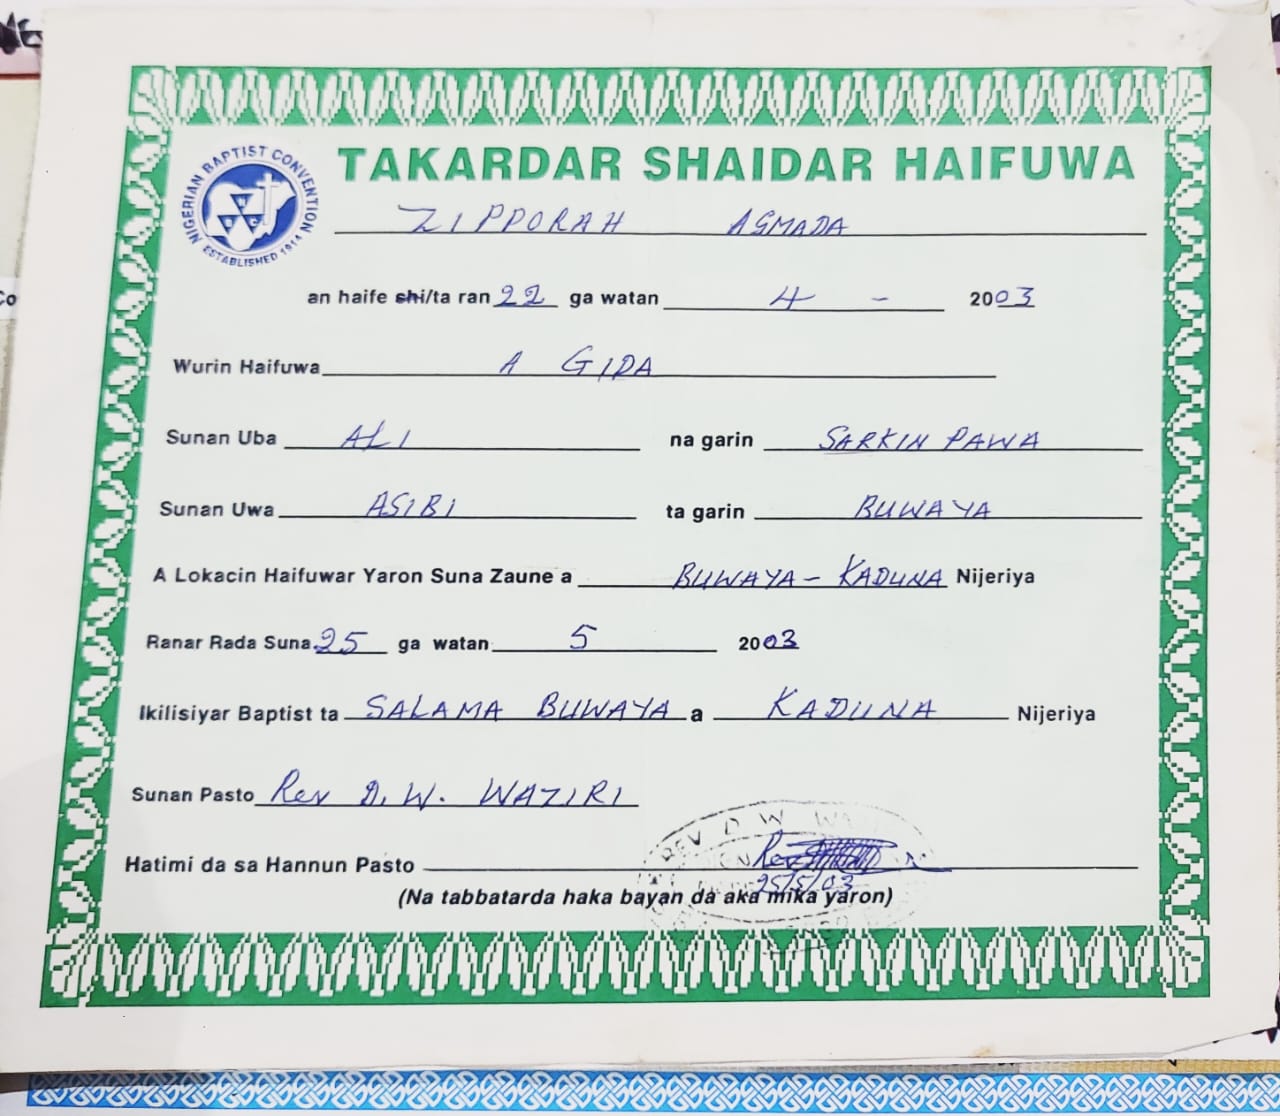 NIGERIAN BAPTIST CONVENTION
ESTABLISHED 1914
TAKARDAR SHAIDAR HAIFUWA
ZIPPORAH AGMADA
an haife shi/ta ran 22 ga watan 4 - 2003
Wurin Haifuwa A GIDA
Sunan Uba ALI na garin SARKIN PAWA
Sunan Uwa ASIBI ta garin BUWAYA
A Lokacin Haifuwar Yaron Suna Zaune a BUWAYA - KADUNA Nijeriya
Ranar Rada Suna 25 ga watan 5 2003
Ikilisiyar Baptist ta SALAMA BUWAYA a KADUNA Nijeriya
Sunan Pasto Rev D. W. WAZIRI
REV D W
Hatimi da sa Hannun Pasto Rev
25/5/03
(Na tabbatarda haka bayan da aka mika yaron)